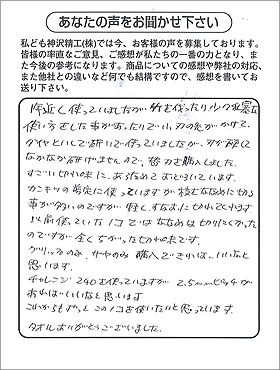 あなたの声をお聞かせ下さい
私ども神沢精工(株)では今、お客様の声を募集しております。
皆様の率直なご意見、ご感想が私たちの一番の力となり、ま
た今後の参考になります。商品についての感想や弊社の対応、
また他社との違いなど何でも結構ですので、感想を書いてお
送り下さい。
年近く使っていましたが 竹を使ったり少々乱暴な
使い方をした事があったりで、刃の先がかけて、
研いで使っていましたが、刃が硬くて
なかなか研けませんので、替刃を購入しました。
すごい切れ味に、あらためておどろいています。
カニキリの剪定に使っていますが 枝をななめに切る
事が多いのですが 軽くすなおに切れてくれます
以前使っていたノコではななめは切りにくかった
のですが 全くちがった切れ味です。
グリップのみ、サヤのみ 購入できれば、いいなと
思います。
チャレンジ 240も使っていますが 2.5mmピッチが
あればいいなと思います
これからもずっと このノコを使いたいと思っています。
タオルありがとうございました。